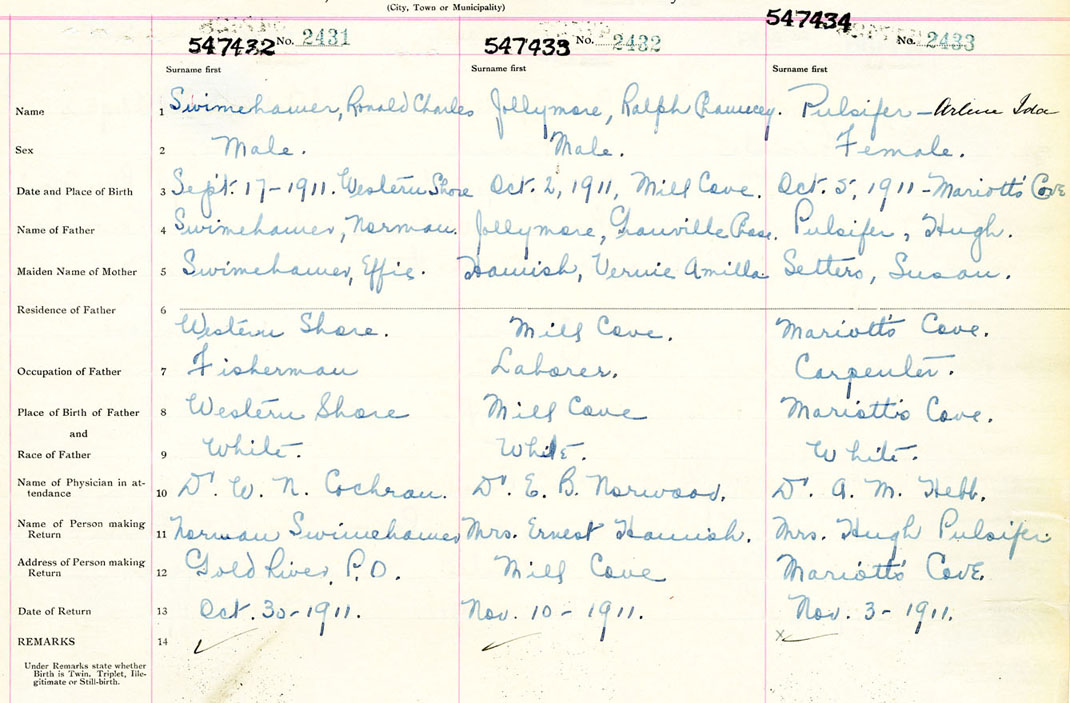 (City, Town or Municipality)
547432 No. 2431 547433 No. 2432 547434 No. 2433
Surname first Surname first Surname first
Name 1 Swimehamer, Ronald Charles Jollymore, Ralph Chauncey. Pulsifer - Arlene Ida
Sex 2 Male. Male. Female.
Date and Place of Birth 3 Sept. 17-1911. Western Shore Oct. 2, 1911, Mill Cove. Oct. 5, 1911 - Mariott's Cove
Name of Father 4 Swimehamer, Norman. Jollymore, Granville Chase. Pulsifer, Hugh.
Maiden Name of Mother 5 Swimehamer, Effie. Hamish, Vernie Amilla Setters, Susan.
Residence of Father 6
Western Shore. Mill Cove. Mariott's Cove.
Occupation of Father 7 Fisherman Laborer. Carpenter.
Place of Birth of Father 8 Western Shore Mill Cove Mariott's Cove.
and
Race of Father 9 White. White. White.
Name of Physician in at-
tendance 10 Dr. W. N. Cochran. Dr. E. B. Norwood. Dr. A. M. Hebb.
Name of Person making
Return 11 Norman Swimehamer Mrs. Ernest Hamish. Mrs. Hugh Pulsifer.
Address of Person making
Return 12 Gold River, P.O. Mill Cove Mariott's Cove.
Date of Return 13 Oct. 30-1911. Nov. 10-1911. Nov. 3-1911.
REMARKS 14
Under Remarks state whether
Birth is Twin, Triplet, Ille-
gitimate or Still-birth.